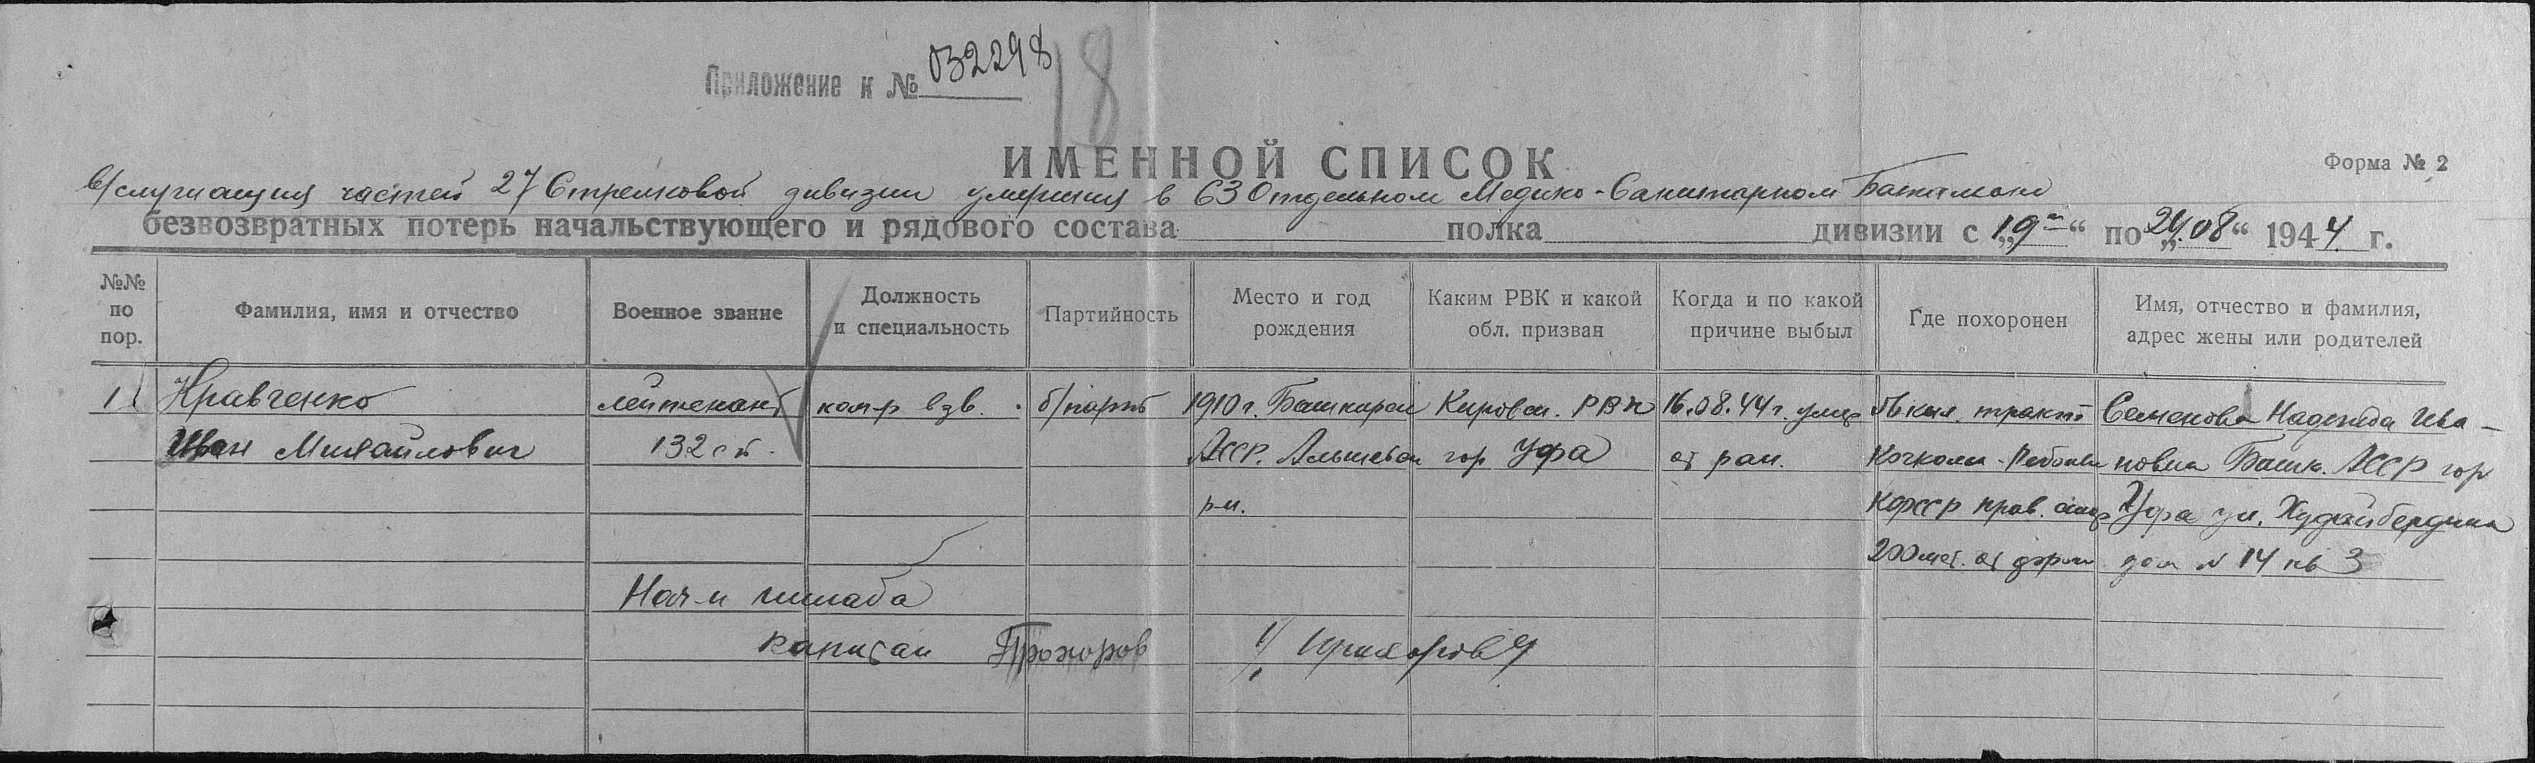 Приложение к № 032298
18
ИМЕННОЙ СПИСОК
Форма № 2
в/служащих частей 27 Стрелковой дивизии умерших в 63 Отдельном Медико-Санитарном Батальоне
безвозвратных потерь начальствующего и рядового состава полка дивизии с „19“ по „24.08“ 1944 г.
№№ по пор.
Фамилия, имя и отчество
Военное звание
Должность и специальность
Партийность
Место и год рождения
Каким РВК и какой обл. призван
Когда и по какой причине выбыл
Где похоронен
Имя, отчество и фамилия, адрес жены или родителей
1 Кравченко лейтенант ком-р взв. б/парт 1910 г. Башкирск Кировск. РВК 16.08.44 г. умер тракт Семенова Надежда Ива-
Иван Михайлович 132 сп. АССР. Альшевск гор Уфа от ран. Кочкома - Реболы новна Башк. АССР гор
р-н. КФССР прав. стор Уфа ул. Худайбердина
200 мет. от дороги дом № 14 кв 3
Нач-к штаба
капитан Прохоров /Прохоров/